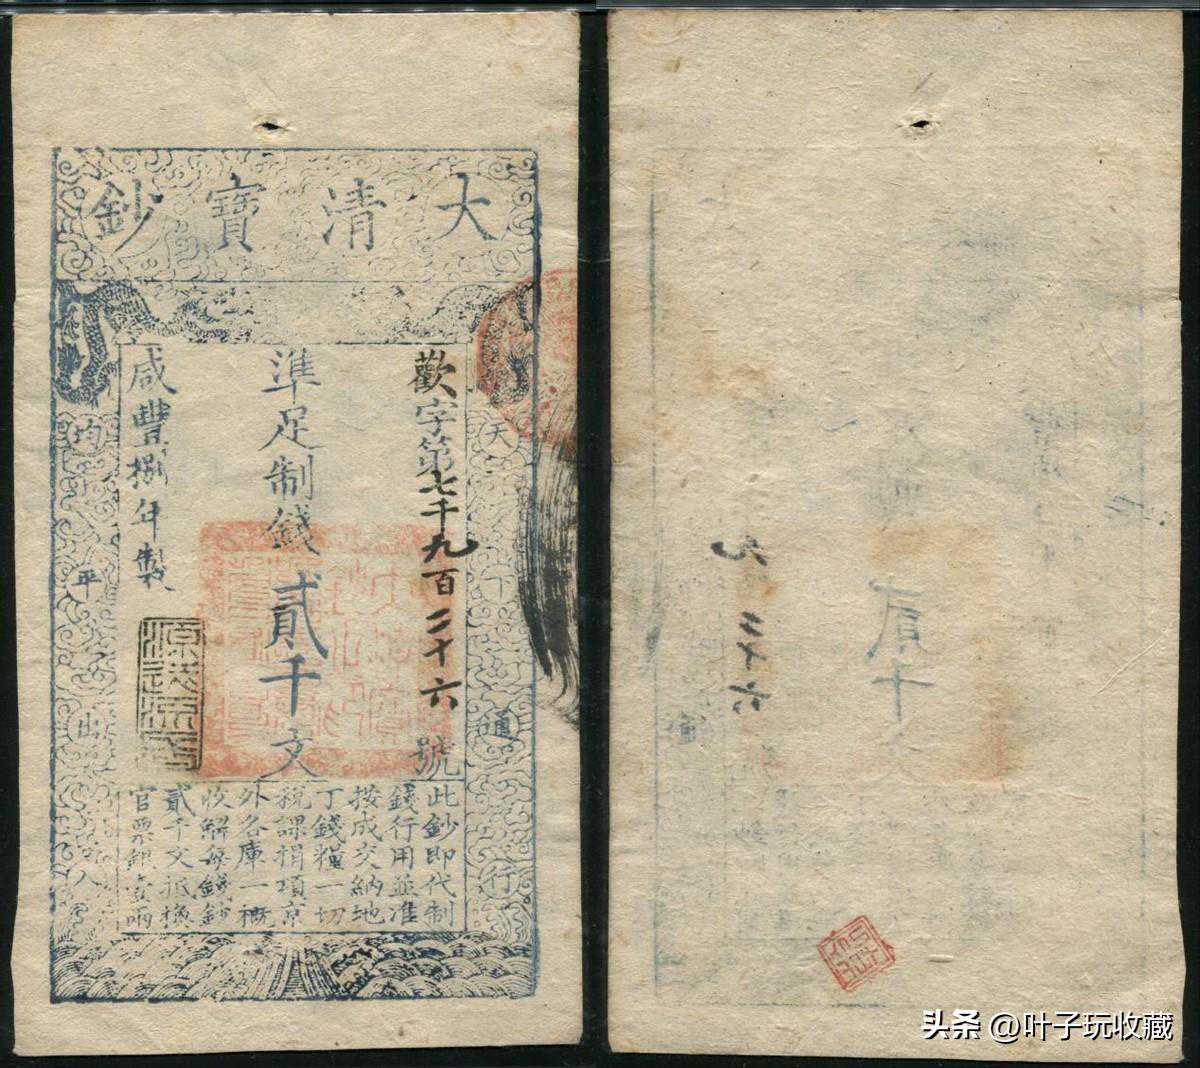 大清寶鈔
天下通行
歡字第七千九百二十六號
準足制錢貳千文
咸豐捌年製
均平出入
此鈔即代制
錢行用並准
按成交納地
丁錢糧一切
稅課捐項京
外各庫一概
收解每錢鈔
貳千文抵換
官票銀壹兩
头条 @叶子玩收藏